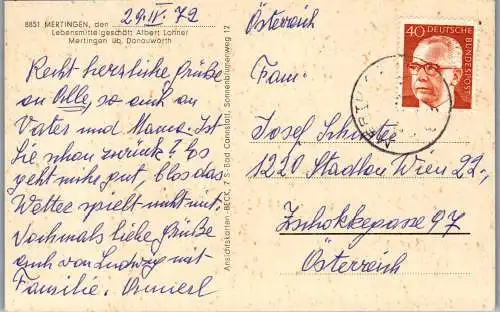 8851 MERTINGEN, den 29.IV.72
Lebensmittelgeschäft Albert Lohner
Mertingen üb. Donauwörth
Recht herzliche Grüße
an Alle, so auch an
Vater und Mama. Ist
Sie schon zurück? Es
geht mir gut, blos das
Wetter spielt nicht mit.
Nochmals liebe Grüße
auch von Ludwig mit
Familie.
Ansichtskarten-BECK, 7 S-Bad Cannstatt, Sonnenblumenweg 12
Österreich
Fam.
Josef
1220 Stadlau Wien 22.,
Zschokkegasse 97
Österreich
40 DEUTSCHE
BUNDESPOST